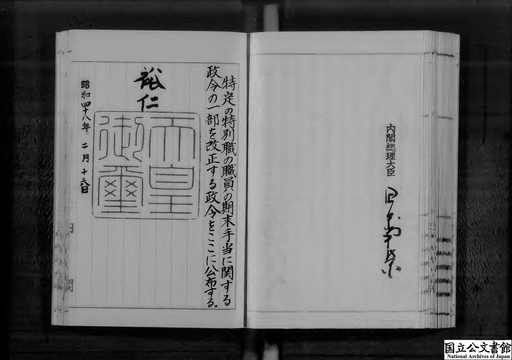 特定の特別職の職員の期末手当に関する
政令の一部を改正する政令をここに公布する。
裕仁
天皇
御璽
昭和四十八年 二月 十六日
内閣総理大臣
国立公文書館
National Archives of Japan